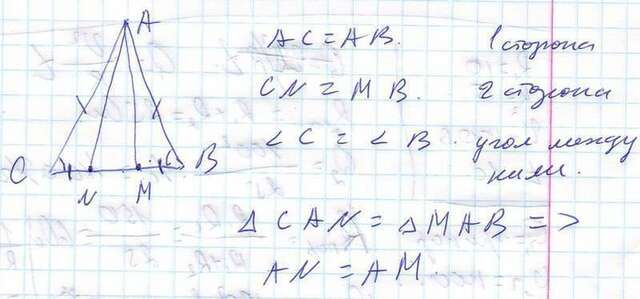 A
AC = AB. 1 сторона
CN = MB. 2 сторона
< C = < B. угол между
ними.
C N M B
Δ CAN = Δ MAB =>
AN = AM